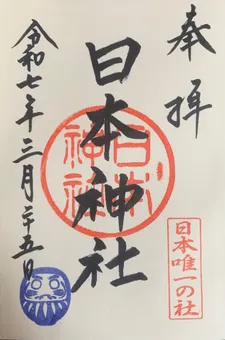 奉拝
日本神社
日本神社
日本唯一の社
令和七年三月二十五日